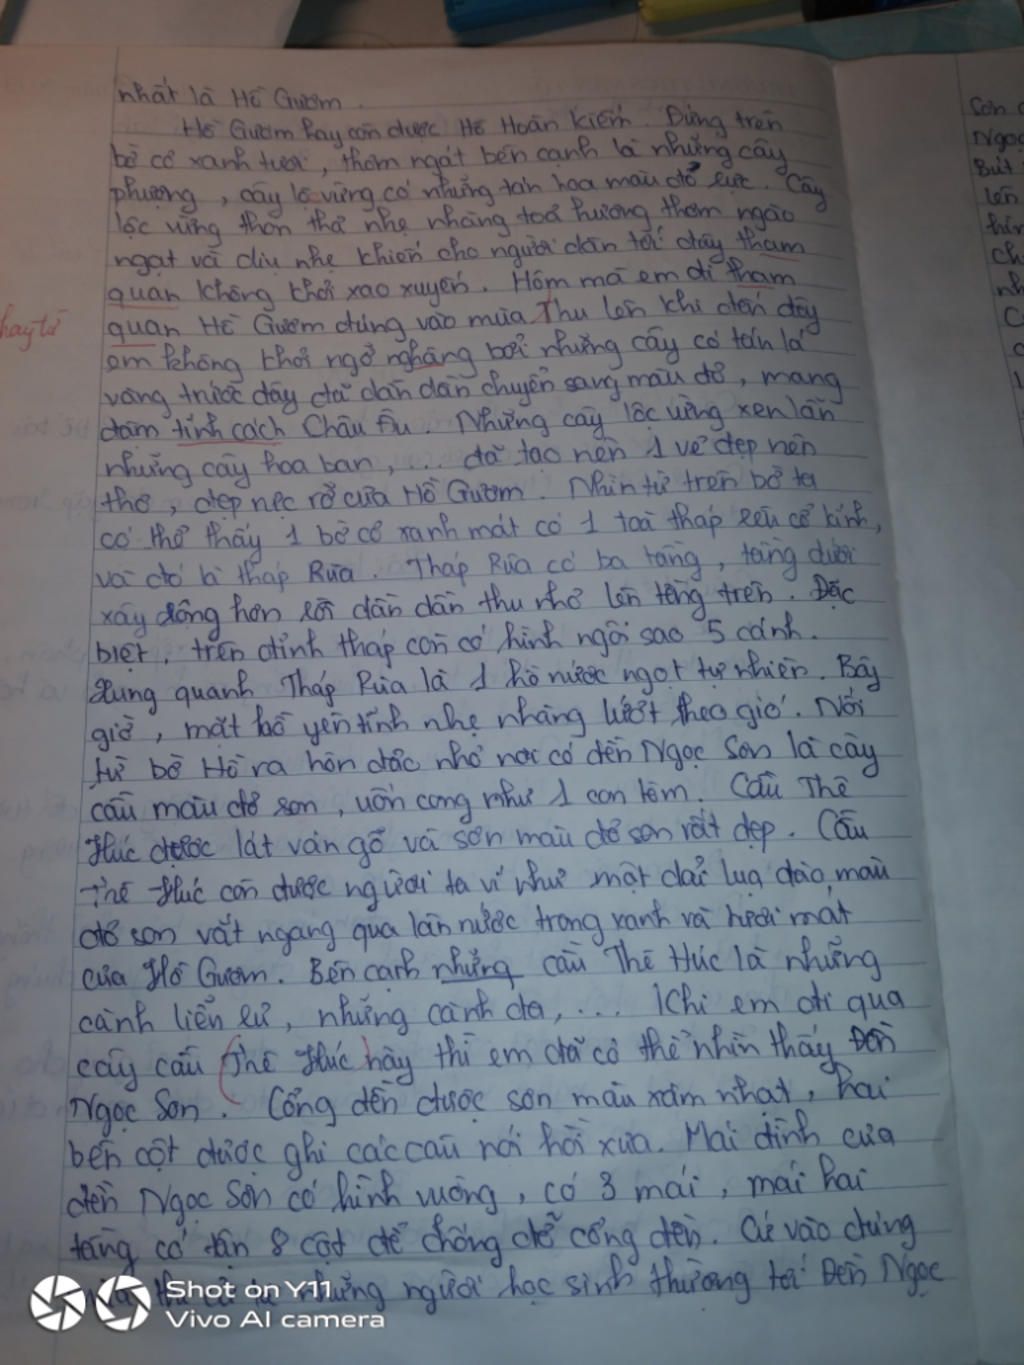 nhất là Hồ Gươm.
Hồ Gươm hay còn được Hồ Hoàn Kiếm. Đứng trên
bờ cỏ xanh tươi, thơm ngát bên cạnh là những cây
phượng, cây lộc vừng có những tán hoa màu đỏ rực. Cây
lộc vừng thơn thả nhẹ nhàng toả hương thơm ngào
ngạt và dịu nhẹ khiến cho người dân tới đây tham
quan không khỏi xao xuyến. Hôm mà em đi tham
hay từ
quan Hồ Gươm đúng vào mùa Thu lên khi đến đây
em không khỏi ngỡ nghàng bởi những cây có tán lá
vàng trước đây đã dần dần chuyển sang màu đỏ, mang
đậm tính cách Châu Âu. Những cây lộc vừng xen lẫn
những cây hoa ban, ... đã tạo nên 1 vẻ đẹp nên
thơ, đẹp rực rỡ của Hồ Gươm. Nhìn từ trên bờ ta
có thể thấy 1 bờ cỏ xanh mát có 1 toà tháp rêu cổ kính,
và đó là tháp Rùa. Tháp Rùa có ba tầng, tầng dưới
xây rộng hơn rồi dần dần thu nhỏ lên tầng trên. Đặc
biệt, trên đỉnh tháp còn có hình ngôi sao 5 cánh.
Xung quanh Tháp Rùa là 1 hồ nước ngọt tự nhiên. Bây
giờ, mặt hồ yên tĩnh nhẹ nhàng lướt theo gió. Nối
từ bờ Hồ ra hòn đảo nhỏ nơi có đền Ngọc Sơn là cây
cầu màu đỏ son, uốn cong như 1 con tôm. Cầu Thê
Húc được lát ván gỗ và sơn màu đỏ son rất đẹp. Cầu
Thê Húc còn được người ta ví như một dải lụa đào, màu
đỏ son vắt ngang qua làn nước trong xanh và tươi mát
của Hồ Gươm. Bên cạnh những cầu Thê Húc là những
cành liễu rủ, những cành đa, ... Khi em đi qua
cây cầu Thê Húc này thì em đã có thể nhìn thấy Đền
Ngọc Sơn. Cổng đền được sơn màu xám nhạt, hai
bên cột được ghi các câu nói hồi xưa. Mái đình của
đền Ngọc Sơn có hình vuông, có 3 mái, mái hai
tầng có tận 8 cột để chống đỡ cổng đền. Cứ vào đúng
những người học sinh thường tới Đền Ngọc
Sơn
Ngọc
Bút
lên
Shot on Y11
Vivo AI camera